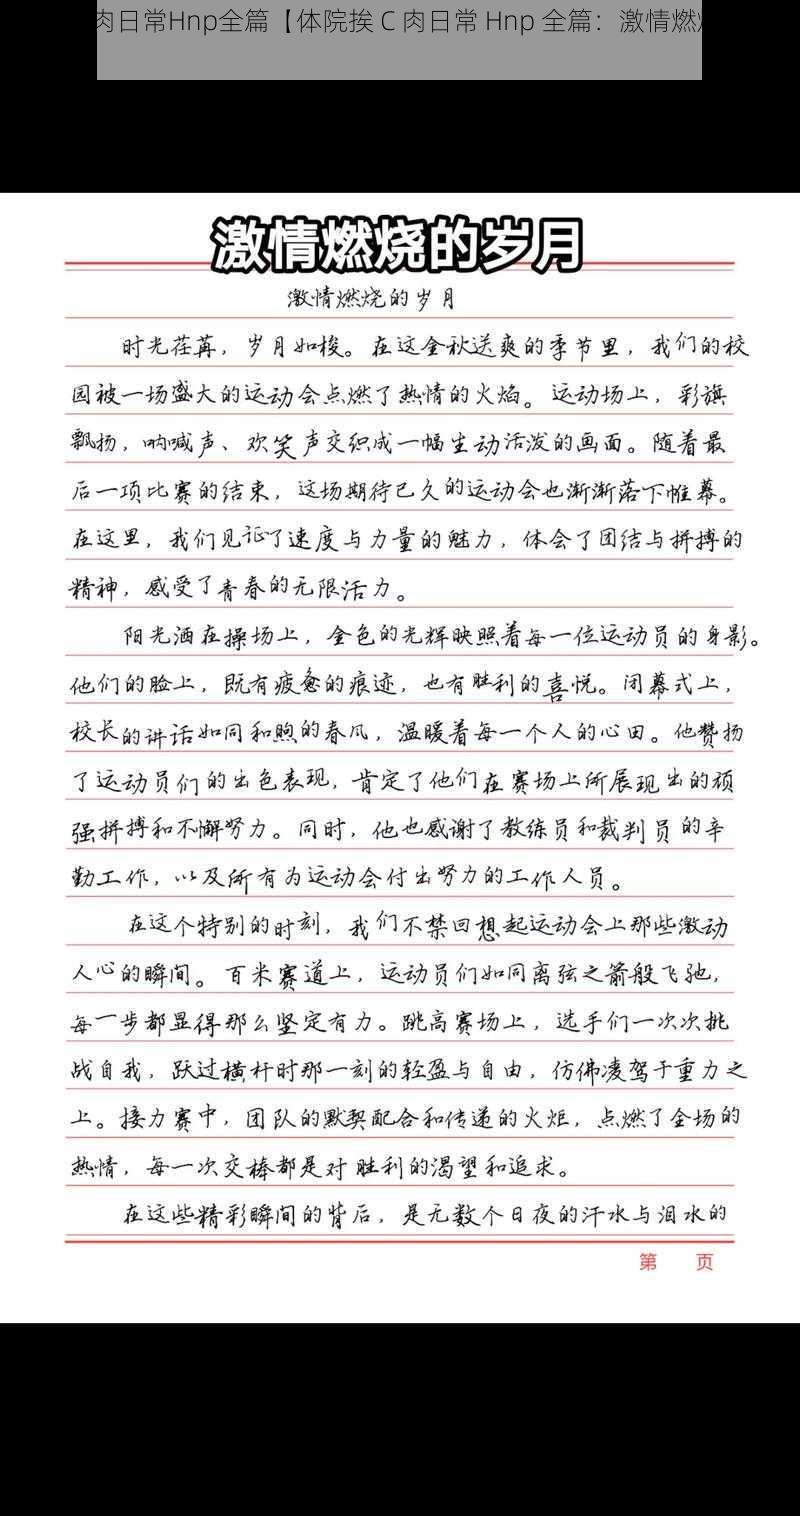 肉日常Hnp全篇【体院挨 C 肉日常 Hnp 全篇：激情燃
激情燃烧的岁月
激情燃烧的岁月
时光荏苒，岁月如梭。在这金秋送爽的季节里，我们的校
园被一场盛大的运动会点燃了热情的火焰。运动场上，彩旗
飘扬，呐喊声、欢笑声交织成一幅生动活泼的画面。随着最
后一项比赛的结束，这场期待已久的运动会也渐渐落下帷幕。
在这里，我们见证了速度与力量的魅力，体会了团结与拼搏的
精神，感受了青春的无限活力。
阳光洒在操场上，金色的光辉映照着每一位运动员的身影。
他们的脸上，既有疲惫的痕迹，也有胜利的喜悦。闭幕式上，
校长的讲话如同和煦的春风，温暖着每一个人的心田。他赞扬
了运动员们的出色表现，肯定了他们在赛场上所展现出的顽
强拼搏和不懈努力。同时，他也感谢了教练员和裁判员的辛
勤工作，以及所有为运动会付出努力的工作人员。
在这个特别的时刻，我们不禁回想起运动会上那些激动
人心的瞬间。百米赛道上，运动员们如同离弦之箭般飞驰，
每一步都显得那么坚定有力。跳高赛场上，选手们一次次挑
战自我，跃过横杆时那一刻的轻盈与自由，仿佛凌驾于重力之
上。接力赛中，团队的默契配合和传递的火炬，点燃了全场的
热情，每一次交棒都是对胜利的渴望和追求。
在这些精彩瞬间的背后，是无数个日夜的汗水与泪水的
第 页